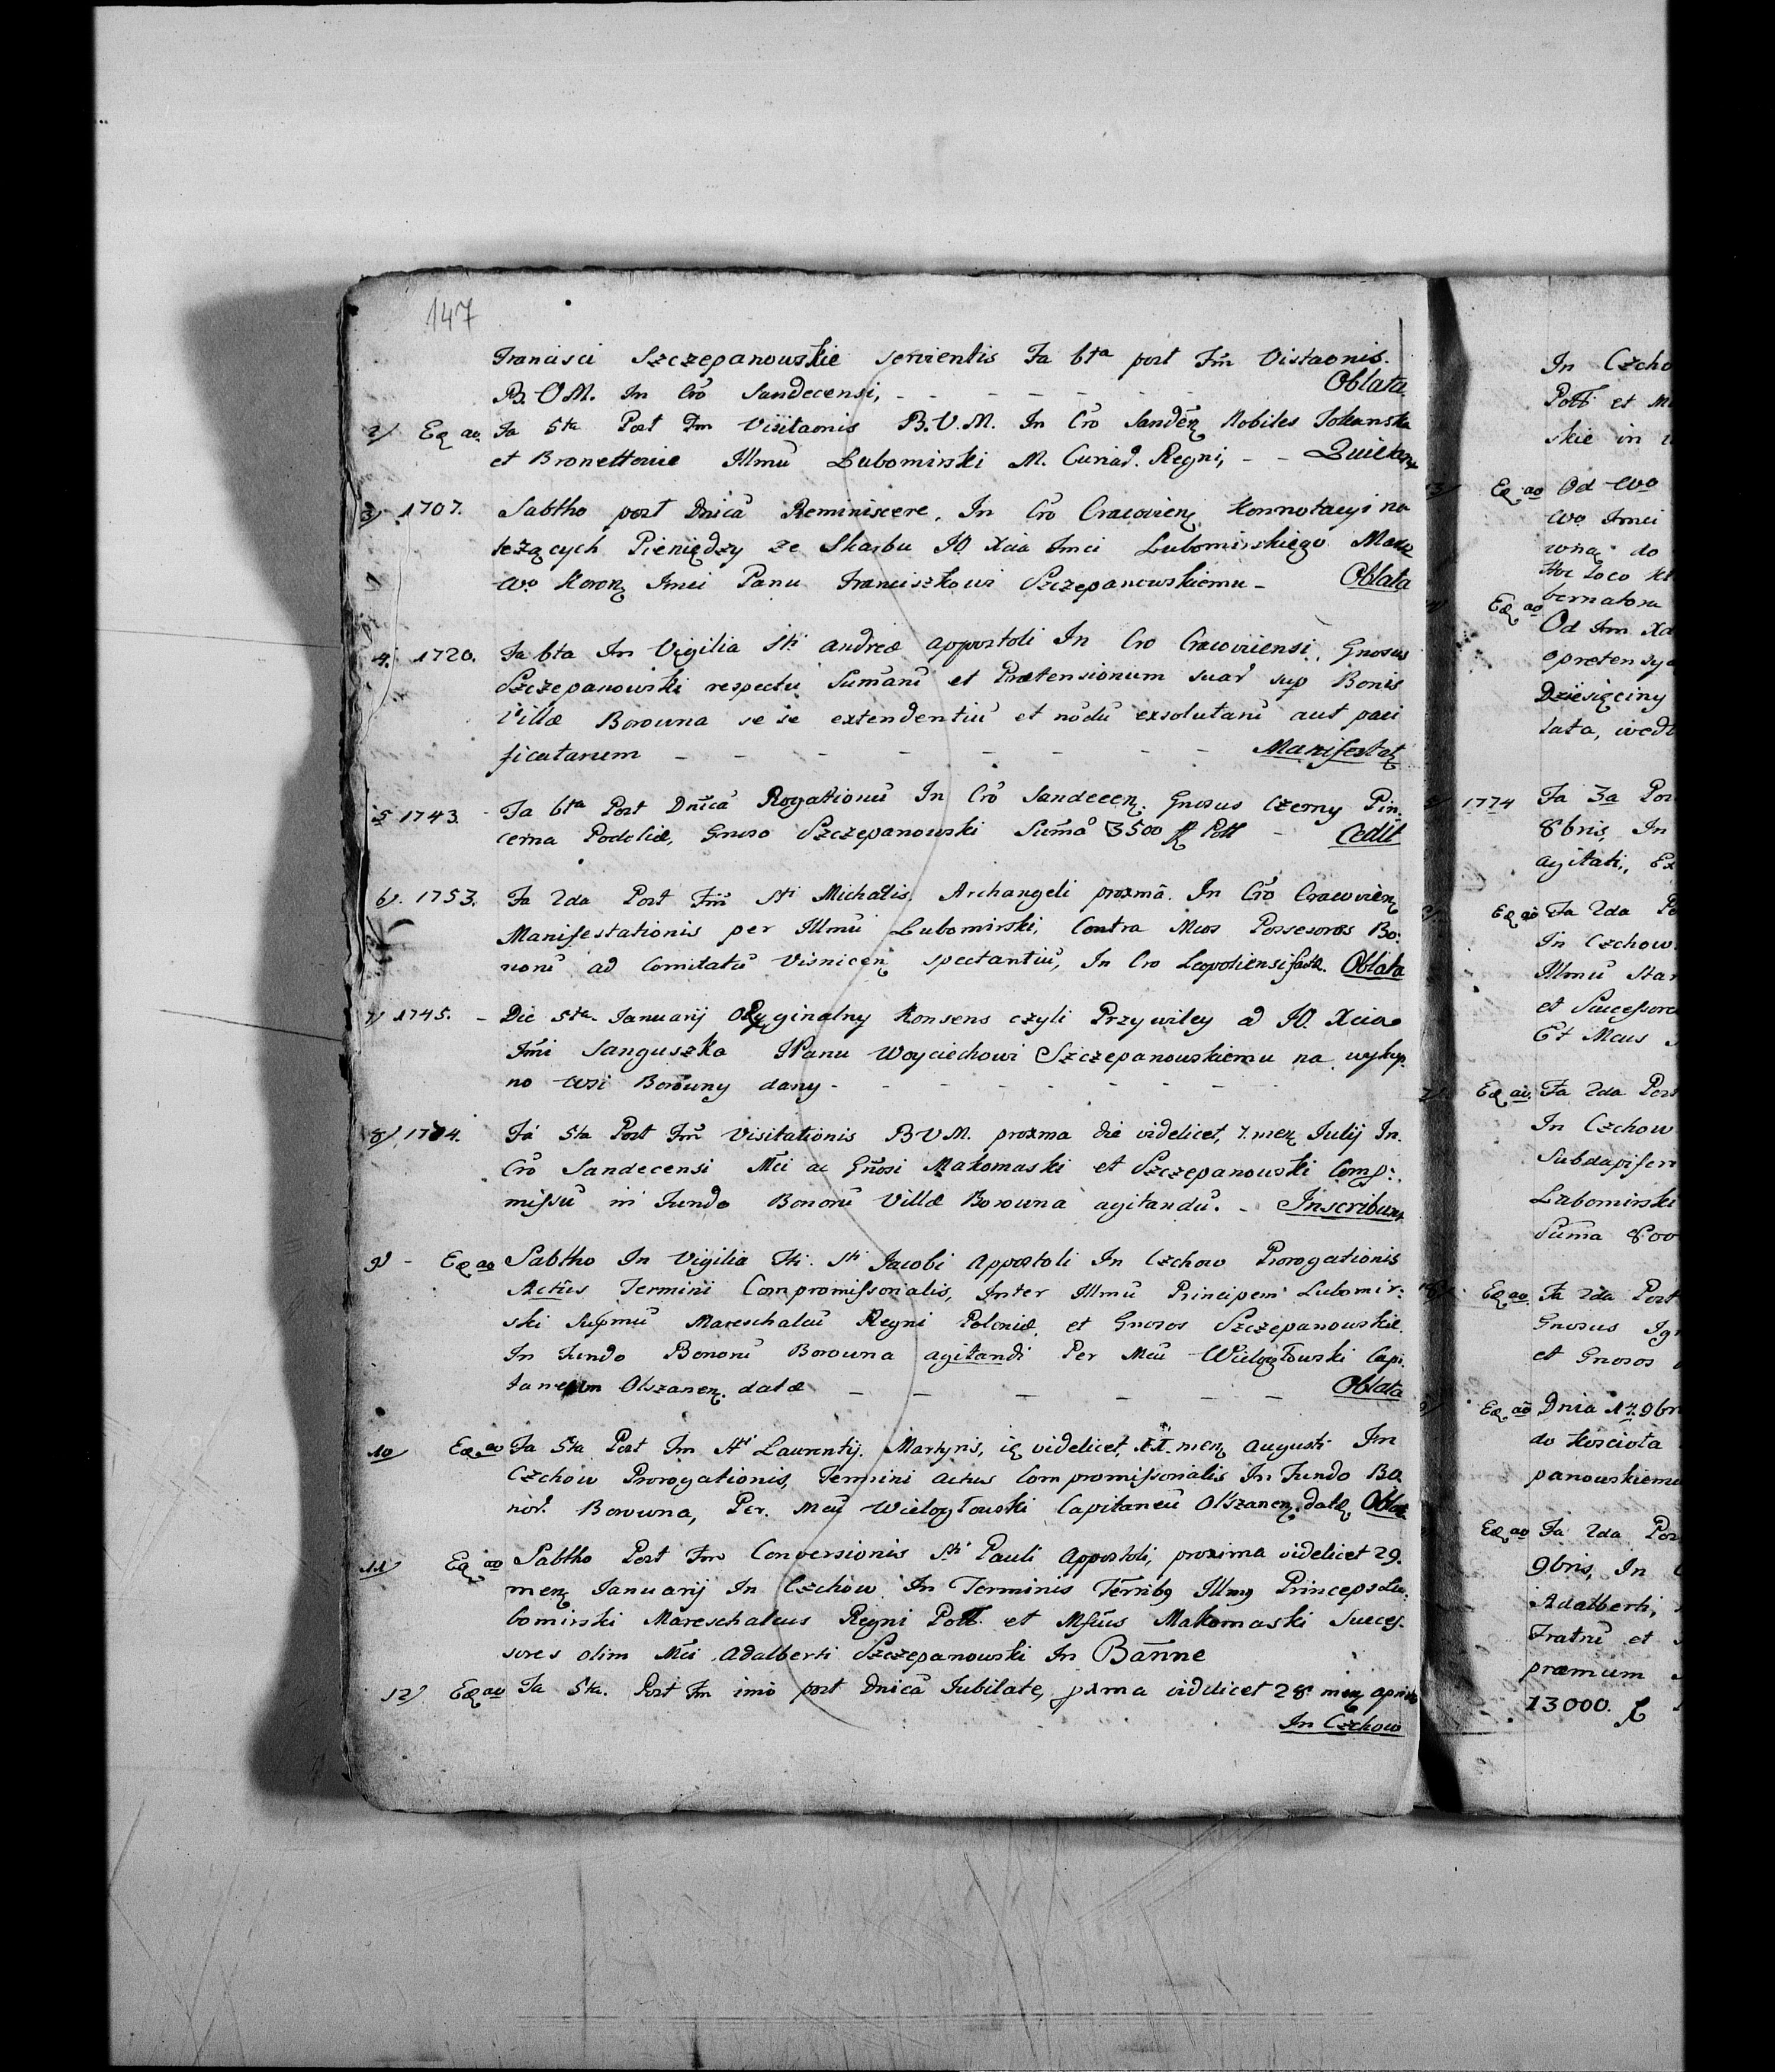 147
Francisci Szczepanowskie servientis Fa 6ta post Fm̄ Vistaonis.
B. V M. In Crō Sandecensi, - - - - - - Oblata
2) Eq ao. Fa 5ta Post Fm Visitaonis B. V. M. In Crō Sanden Nobiles
et Bronettowie Illmū Lubomirski M. Curiad. Regni, - -
3) 1707. Sabtho post Dnicā Reminiscere. In Crō Cracovien Konnotacyi na
leżących Pieniędzy ze Skarbu JO. Xcia Jmci Lubomirskiego Marz
wo Koron Jmci Panu Franciszkowi Szczepanowskiemu - Oblata
4. 1720. Fa 6ta In Vigilia Sti Andreæ Appostoli In Cro Cracoviensi, Gnosus
Szczepanowski respectu Sumarū et Prætensionum suar sup Bonis
Villæ Borowna se se extendentiū et nōdū exsolutarū aut paci
ficatarum - - - - - - - Manifestat
5 1743. Fa 6ta Post Dnicā Rogationū In Crō Sandecen. Gnosus Czerny Pin
cerna Podoliæ, Gnoso Szczepanowski Sumā 3500 fl Poll - Cedit
6). 1753. Fa 2da Post Fm̄ Sti Michælis Archangeli proxmā. In Crō Cracovien
Manifestationis per Illmū Lubomirski, Contra Mcos Possesoros Bo:
norū ad Comitatū Visnicen spectantiū, In Cro Leopoliensi factæ. Oblata
7) 1745. - Die 5ta Januarij Oryginalny Konsens czyli Przywiley od JO. Xcia
Jmi Sanguszka JPanu Woyciechowi Szczepanowskiemu na wykup
no wsi Borowny dany - - - - - -
8) 1774. Fā 5ta Post Fm̄ Visitationis B V M. proxma die videlicet, 7. men Julij In.
Crō Sandecensi Mci ac Gnosi Makomaski et Szczepanowski Comp:
missū in Fundo Bonorū Villæ Borowna agitandū. - Inscribunt
9) - Eq ao Sabtho In Vigilia Sti Jacobi Appostoli In Czchow Prorogationis
Actūs Termini Compromissorialis, Inter Illmū Principem Lubomir:
ski Supmū Mareschalcū Regni Poloniæ, et Gnosos Szczepanowskie.
In Fundo Bonorū Borowna agitandi Per Mcū Wielogłowski Capi
taneum Olszanen. datæ - - - - - - Oblata
10) Eq ao Fa 5ta Post Fm Sti Laurentij. Martyris, videlicet, 11. men Augusti In
Czchow Prorogationis, Termini actus Compromissorialis In Fundo Bo
nor. Borowna, Per. Mcū Wielogłowski Capitaneū Olszanen. datæ
11) Eq ao Sabtho Post Fm Conversionis Sti Pauli Appostoli, proxima videlicet 29.
men Januarij In Czchow In Terminis Terribg Illmg Princeps Lu:
bomirski Mareschalcus Regni Poll. et Mfcūs Makomaski Succes-
sores olim Mci Adalberti Szczepanowski In Bānne
12) Eq ao Fa 5ta. Post Fm imō post Dnicā Jubilate, pxma videlicet 28 men
In Czchow
In Czcho
Poll et
skie in
Eq ao Od Wo
Wo Jmci
wną do
Hoc Loco
Eq ao bernatora
Od Jm
o pretensy
Dziesięciny
lata, wedł
1774 Fa 3a Pos
8bris, In
agitati, Ex
Eq ao Fa 2da Po
In Czchow
Illmū Star
et Successore
Et Mcus
Eq ao. Fa 2da Post
In Czchow
Subdapifer
Lubomirski
Suma 800
Eq ao. Fa 2da Post
Gnosus Ign
et Gnosos
Eq ao Dnia 17. 9br
do kościoła
panowskiemu
Eq ao Fa 2da Pos
9bris, In
Adalberti,
Fratrū et
præmum
13000.